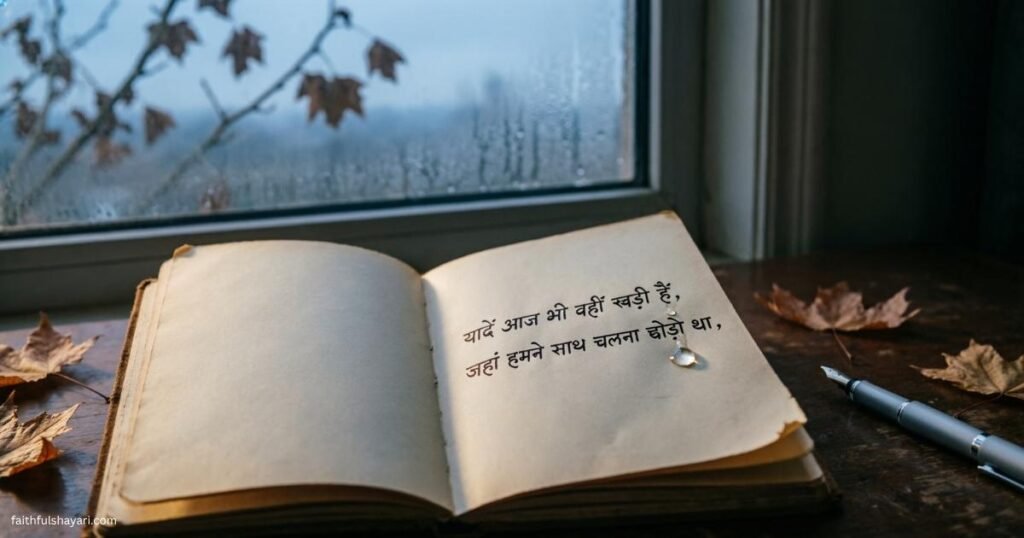 यादें आज भी वहीं खड़ी हैं,
जहां हमने साथ चलना छोड़ो था,
faithfulshayari.com